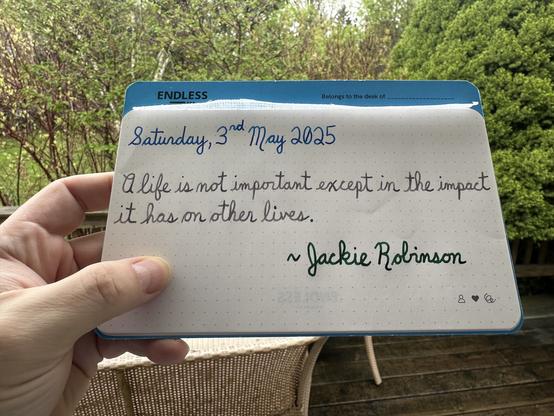 ENDLESS
Belongs to the desk of
Saturday, 3rd May 2025
A life is not important except in the impact
it has on other lives.
~ Jackie Robinson